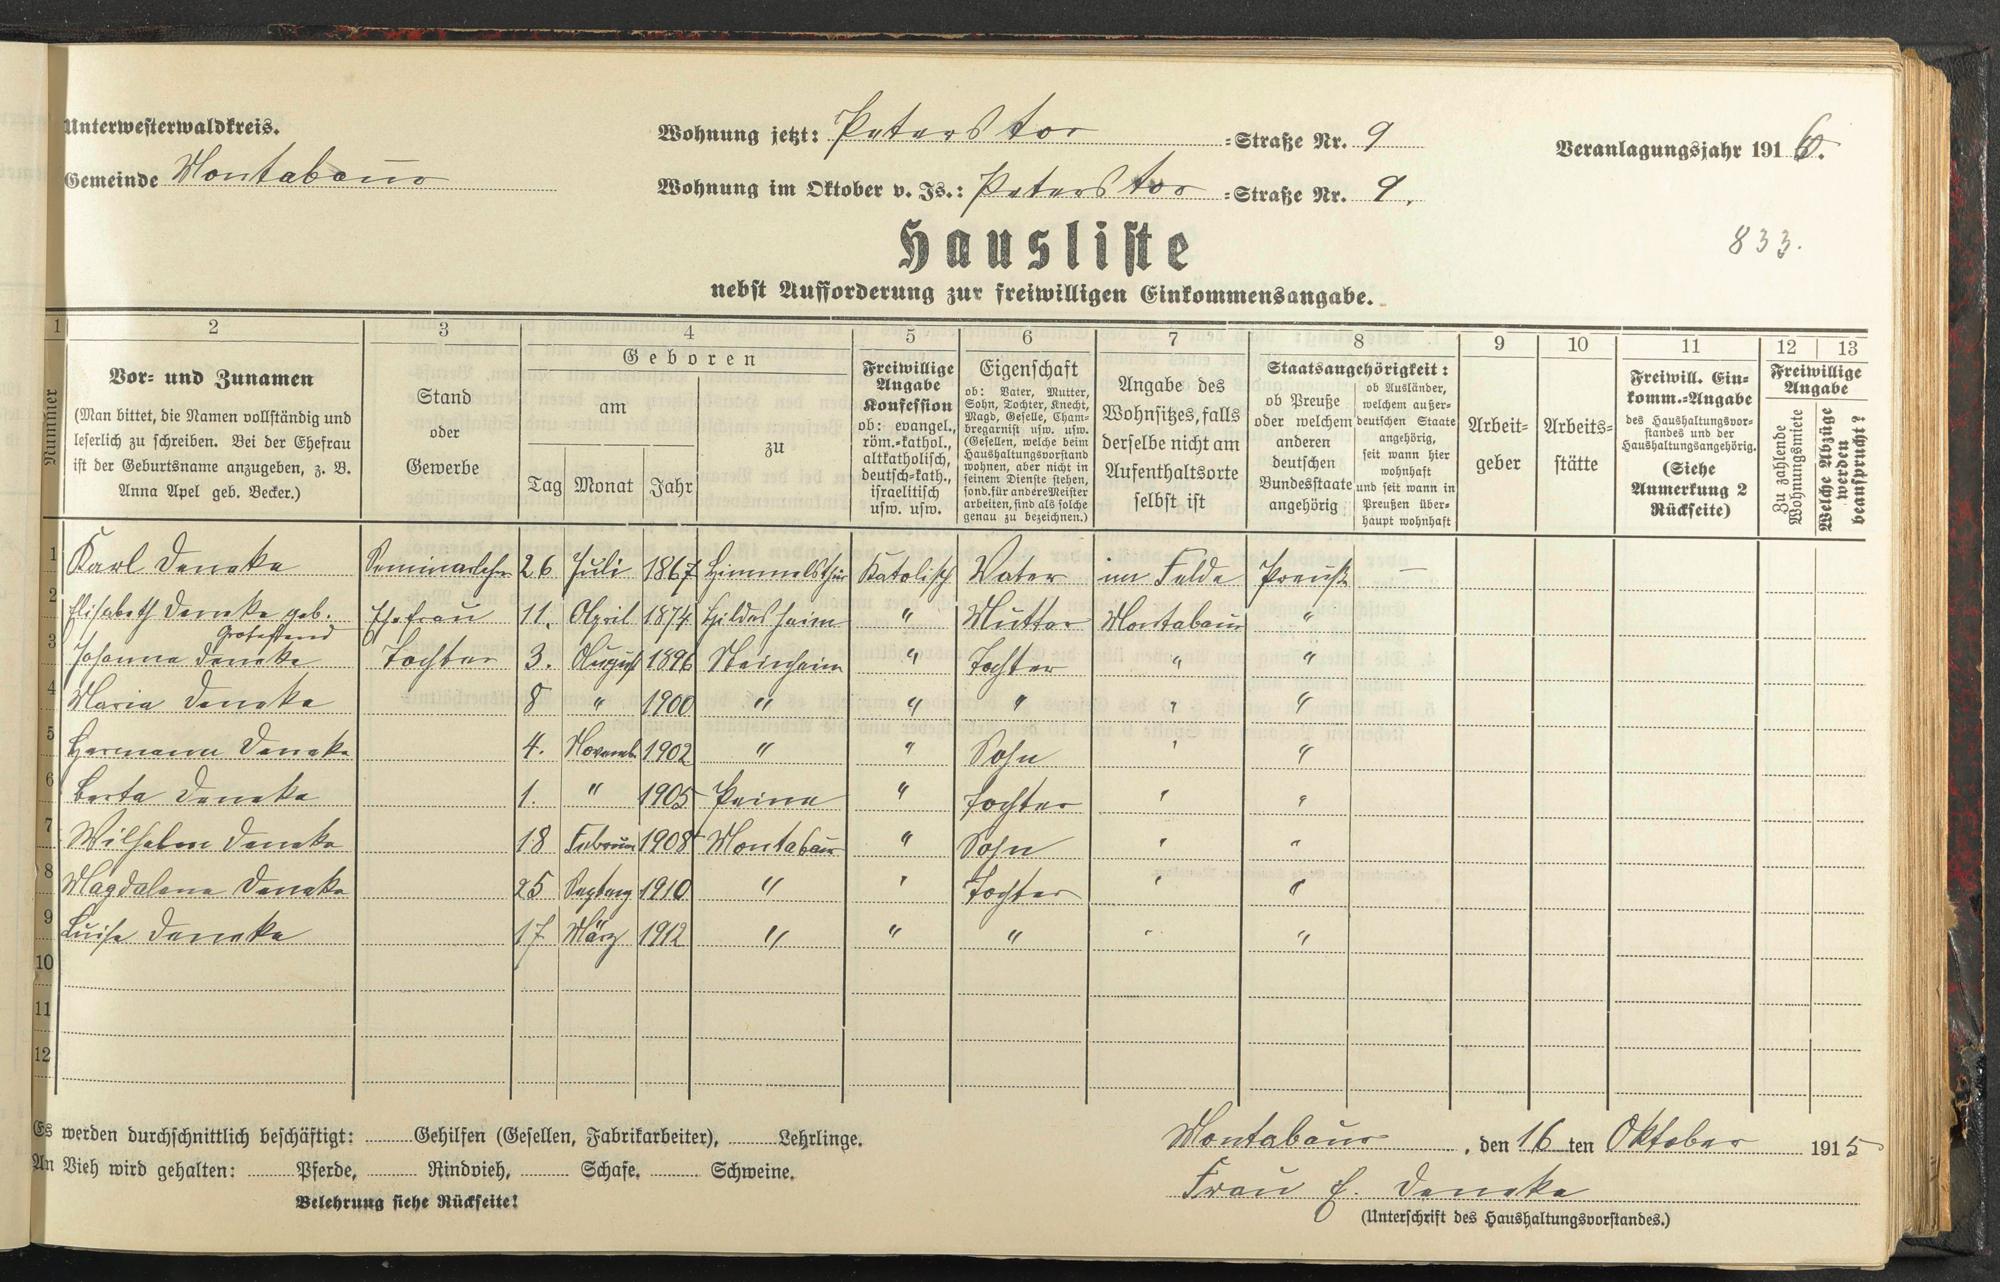 Unterwesterwaldkreis.
Gemeinde Montabaur
Wohnung jetzt: Peters tor =Straße Nr. 9
Wohnung im Oktober v. Js.: Peters tor =Straße Nr. 9.
Veranlagungsjahr 1916.
833.
Hausliste
nebst Aufforderung zur freiwilligen Einkommensangabe.
1 2 3 4 5 6 7 8 9 10 11 12 13
Nummer
Vor- und Zunamen
(Man bittet, die Namen vollständig und
leserlich zu schreiben. Bei der Ehefrau
ist der Geburtsname anzugeben, z. B.
Anna Apel geb. Becker.)
Stand
oder
Gewerbe
Geboren
am
Tag Monat Jahr
zu
Freiwillige
Angabe
Konfession
ob: evangel.,
röm.-kathol.,
altkatholisch,
deutsch-kath.,
israelitisch
usw. usw.
Eigenschaft
ob: Vater, Mutter,
Sohn, Tochter, Knecht,
Magd, Geselle, Cham-
bregarnist usw. usw.
(Gesellen, welche beim
Haushaltungsvorstand
wohnen, aber nicht in
seinem Dienste stehen,
sond. für andere Meister
arbeiten, sind als solche
genau zu bezeichnen.)
Angabe des
Wohnsitzes, falls
derselbe nicht am
Aufenthaltsorte
selbst ist
Staatsangehörigkeit:
ob Preuße
oder welchem
anderen
deutschen
Bundesstaate
angehörig
ob Ausländer,
welchem außer-
deutschen Staate
angehörig,
seit wann hier
wohnhaft
und seit wann in
Preußen über-
haupt wohnhaft
Arbeit-
geber
Arbeits-
stätte
Freiwill. Ein-
komm.-Angabe
des Haushaltungsvor-
standes und der
Haushaltungsangehörig.
(Siehe
Anmerkung 2
Rückseite)
Freiwillige
Angabe
Zu zahlende
Wohnungsmiete
Welche Abzüge
werden
beansprucht?
1 Karl Deneke Seminarlehr 26 Juli 1867 Himmelsthür Katolisch Vater im Felde Preuße —
2 Elisabeth Deneke geb. Ehefrau 11. April 1874 Hildesheim " Mutter Montabaur "
Grotefend
3 Johanna Deneke Tochter 3. August 1896 Steinheim " Tochter " "
4 Maria Deneke 8 " 1900 " " " " "
5 Hermann Deneke 4. Novemb. 1902 " " Sohn " "
6 Berta Deneke 1. " 1905 Peine " Tochter " "
7 Wilhelm Deneke 18 Februar 1908 Montabaur " Sohn " "
8 Magdalena Deneke 25 1910 " " Tochter " "
9 Luise Deneke 17 März 1912 " " " " "
10
11
12
Es werden durchschnittlich beschäftigt: Gehilfen (Gesellen, Fabrikarbeiter), Lehrlinge.
An Vieh wird gehalten: Pferde, Rindvieh, Schafe, Schweine.
Belehrung siehe Rückseite!
Montabaur, den 16ten Oktober 1915
Frau E. Deneke
(Unterschrift des Haushaltungsvorstandes.)